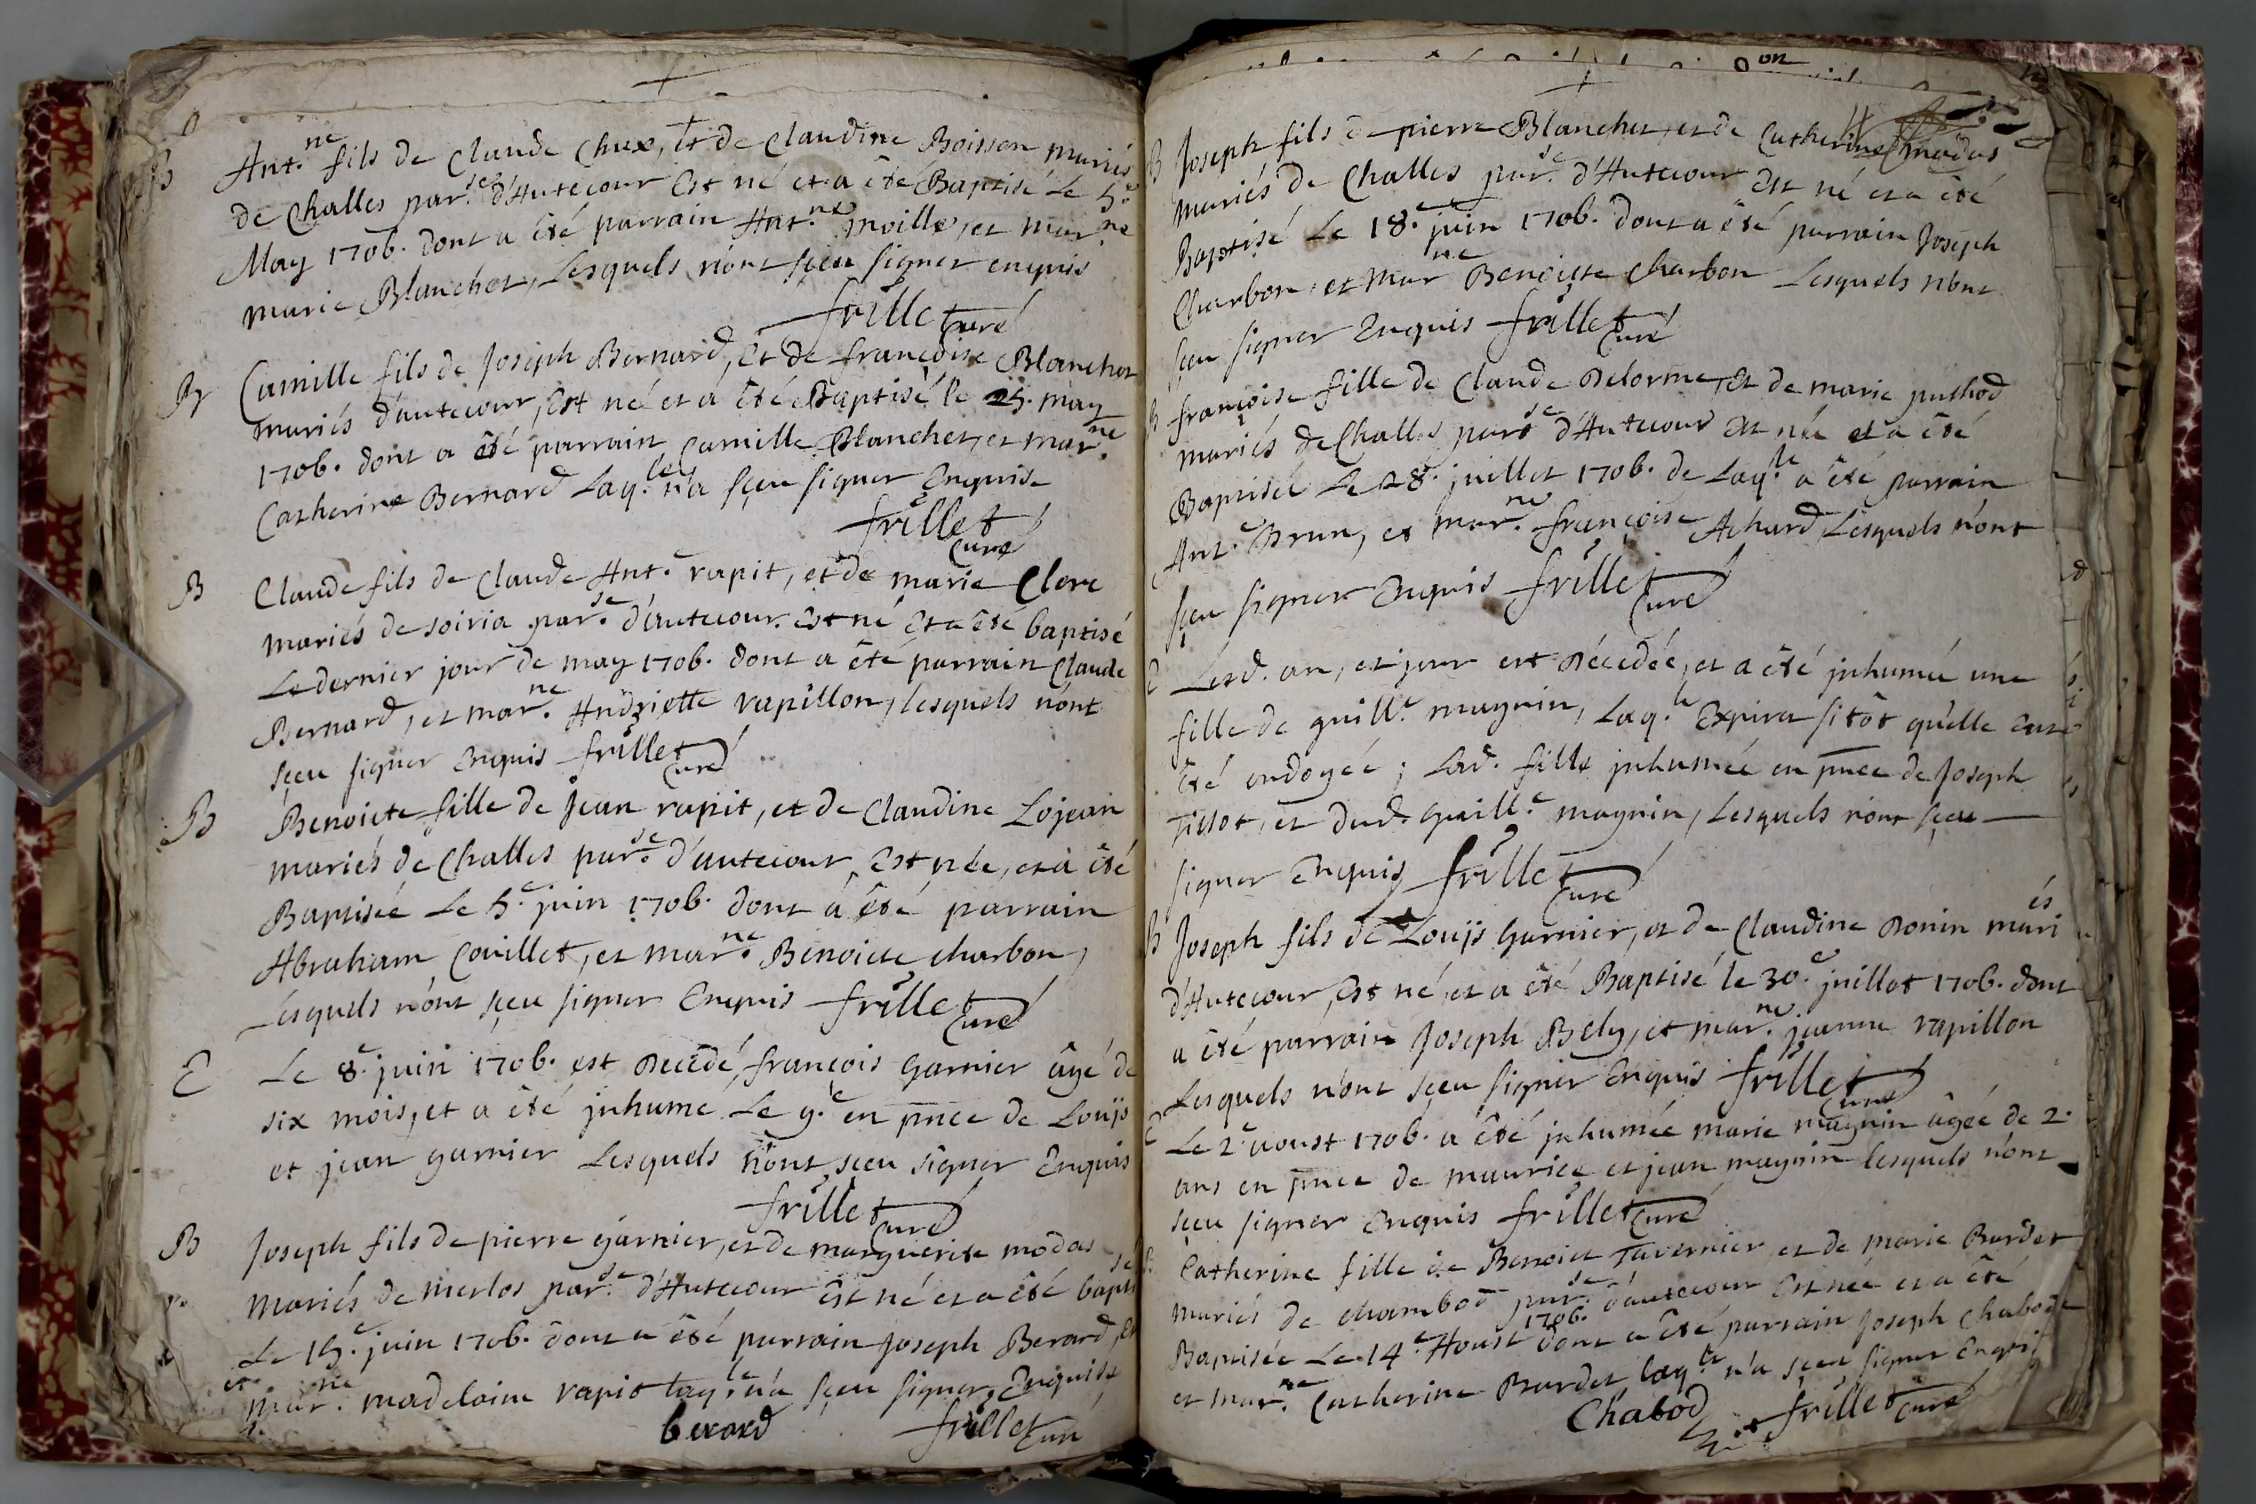 B Ant.ne fils de Claude Chux, Et de Claudine Boisson mariés
de Challes par.se d'Hutecour Est né et a été Baptisé Le 5.e
May 1706. dont a été parrain Ant.ne moille, et mar.ne
marie Blanchet, Lesquels n'ont sçeu signer enquis
frillet curé
B Camille fils de Joseph Bernard, et de françoise Blanchet
mariés d'autecour, Est né et a été Baptisé le 25. may
1706. dont a été parrain Camille Blanchet, et mar.ne
Catherine Bernard Laq.le n'a sçeu signer Enquise
frillet curé
B Claude fils de Claude Ant.e rapit, et de marie Clerc
mariés de soiria par.se d'autecour. Est né Et a été baptisé
Le dernier jour de may 1706. dont a été parrain Claude
Bernard, et mar.ne Andriette rapillon, lesquels n'ont
sçeu signer enquis frillet curé
B Benoicte fille de Jean rapit, et de Claudine Lojean
mariés de Challes par.se d'autecour Est née, et a été
Baptisée Le 5.e juin 1706. dont a été parrain
Abraham Covillet, et mar.ne Benoicte charbon,
Lesquels n'ont sçeu signer Enquis frillet curé
E Le 8.e juin 1706. est Decédé, françois Garnier âgé de
six mois, et a été jnhumé Le 9.e en pnce de Louijs
et jean garnier Lesquels n'ont sçeu signer Enquis
frillet curé
B Joseph fils de pierre garnier, et de marguerite modas
Mariés de merlos par.se d'Hutecour est né et a été bapti sé
Le 15.e juin 1706. dont a été parrain Joseph Berard, et
et mar.ne madelaine rapit laq.le n'a sçeu signer Enquise
berard frillet curé
B Joseph fils de pierre Blanchet, et de Catherine modas
mariés de Challes par.se d'Hutecour Est né et a été
Baptisé Le 18.e juin 1706. dont a été parrain Joseph
Charbon, et mar.ne Benoicte Charbon Lesquels n'ont
sçeu signer Enquis frillet curé
B françoise fille de Claude Delorme, Et de marie puthod
mariés de Challes par.se d'Hutecour Est née et a été
Baptisée Le 28.e juillet 1706. de Laq.le a été parrain
Ant.e Brun, et mar.ne françoise Achard, Lesquels n'ont
sçeu signer Enquis frillet curé
E Lesd. an, et jour est Décédée, et a été jnhumée une
fille de guill.e magnin, Laq.le Expira sitôt qu'elle eut
été ondoyée; Lad. fille jnhumée en pnce de Joseph
Tissot, et dud. Guill.e magnin, Lesquels n'ont sçeu
signer Enquis frillet curé
B Joseph fils de Louijs Garnier, et de Claudine Donin mari és
d'Hutecour, Est né, et a été Baptisé le 30.e juillet 1706. dont
a été parrain Joseph Bely, et mar.ne jeanne rapillon
Lesquels n'ont sçeu signer Enquis frillet curé
E Le 2.e aoust 1706. a été jnhumée marie magnin âgée de 2.
ans en pnce de maurice et jean magnin lesquels n'ont
sçeu signer Enquis frillet curé
B Catherine fille de Benoict Tavernier et de marie Burdet
mariés de chambod par.se d'autecour Est née et a été
Baptisée Le 14.e Aoust 1706. dont a été parrain Joseph Chabod
et mar.ne Catherine Burdet laq.le n'a sçeu signer Enquis
Chabod frillet curé